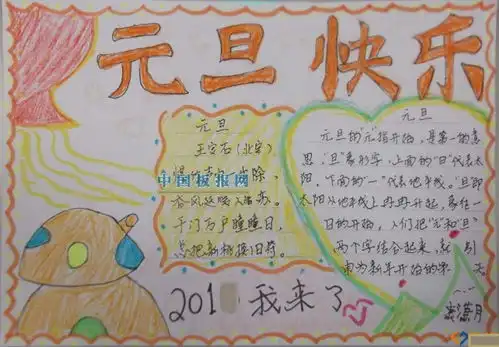 元旦快乐
元旦
王安石(北宋)
爆竹声中一岁除,
春风送暖入屠苏。
千门万户曈曈日,
总把新桃换旧符。
中国板报网
元旦
元旦的"元"指开始,是第一的意
思,"旦"象形字,上面的"日"代表太
阳,下面的"一"代表地平线。"旦"即
太阳从地平线上冉冉升起,象征一
日的开始,人们把"元和旦"
两个字结合起来,就
为新年开始的第 天
201 我来了
月